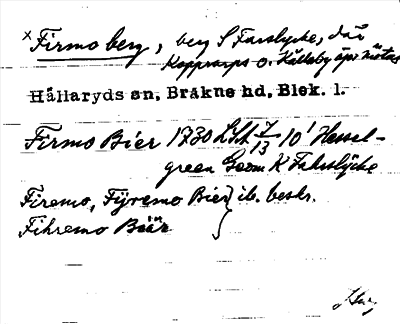 × Firmo berg, berg S Farslycke, där
Kopparps o. Källeby ägor mötas
Hällaryds sn, Bräkne hd, Blek. l.
Firmo Bier 1730 LSA 7/13 10' Hessel-
green Geom K Fahrslycke
Firemo, Fÿremo Bier } ib. beskr.
Fihremo Biär